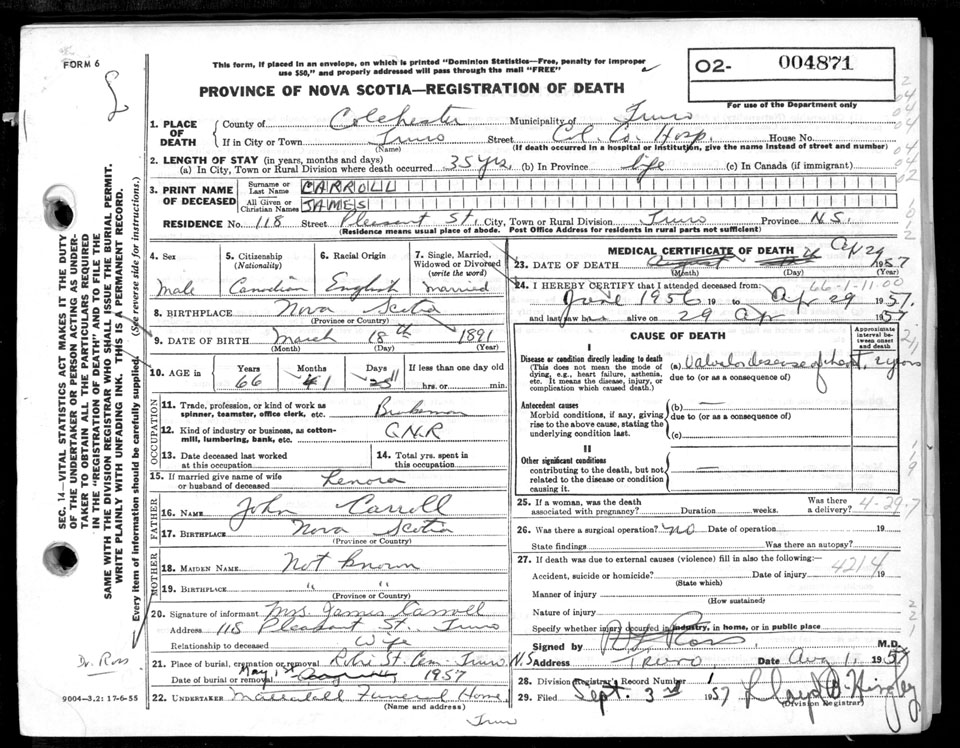 FORM 6
This form, if placed in an envelope, on which is printed "Dominion Statistics—Free, penalty for improper
use $50," and properly addressed will pass through the mail "FREE"
O2- 004871
For use of the Department only
PROVINCE OF NOVA SCOTIA—REGISTRATION OF DEATH
1. PLACE OF DEATH { County of Colchester Municipality of Truro
If in City or Town Truro Street Col. Co. Hosp. House No.
(Name) (If death occurred in a hospital or institution, give the name instead of street and number)
2. LENGTH OF STAY (in years, months and days)
(a) In City, Town or Rural Division where death occurred 35 yrs. (b) In Province life (c) In Canada (if immigrant)
3. PRINT NAME OF DECEASED { Surname or Last Name CARROLL
All Given or Christian Names JAMES
RESIDENCE No. 118 Street Pleasant St. City, Town or Rural Division Truro Province N.S.
(Residence means usual place of abode. Post Office Address for residents in rural parts not sufficient)
4. Sex
Male
5. Citizenship
(Nationality)
Canadian
6. Racial Origin
English
7. Single, Married,
Widowed or Divorced
(write the word)
Married
8. BIRTHPLACE Nova Scotia
(Province or Country)
9. DATE OF BIRTH March 18th 1891
(Month) (Day) (Year)
10. AGE in Years Months Days If less than one day old
66 1 11 hrs. or min.
OCCUPATION
11. Trade, profession, or kind of work as
spinner, teamster, office clerk, etc. Brakeman
12. Kind of industry or business, as cotton-
mill, lumbering, bank, etc. C.N.R
13. Date deceased last worked
at this occupation
14. Total yrs. spent in
this occupation
15. If married give name of wife
or husband of deceased Lenora
FATHER
16. NAME John Carroll
17. BIRTHPLACE Nova Scotia
(Province or Country)
MOTHER
18. MAIDEN NAME Not known
19. BIRTHPLACE " "
(Province or Country)
20. Signature of informant Mrs. James Carroll
Address 118 Pleasant St. Truro
Relationship to deceased Wife
21. Place of burial, cremation or removal Robie St. Cem. Truro N.S
Date of burial or removal May 1st 1957
22. UNDERTAKER Funeral Home,
(Name and address)
Truro
MEDICAL CERTIFICATE OF DEATH
23. DATE OF DEATH Apr 29 1957
(Month) (Day) (Year)
66-1-11.00
24. I HEREBY CERTIFY that I attended deceased from:
June 1956 19 to Apr 29 1957.
and last saw h alive on 29 Apr 1957
CAUSE OF DEATH
Approximate
interval be-
tween onset
and death
I
Disease or condition directly leading to death
(This does not mean the mode of
dying, e.g., heart failure, asthenia,
etc. It means the disease, injury, or
complication which caused death.)
(a) Valvular disease of heart, 2 years
due to (or as a consequence of)
Antecedent causes
Morbid conditions, if any, giving
rise to the above cause, stating the
underlying condition last.
(b) —
due to (or as a consequence of)
(c)
II
Other significant conditions
contributing to the death, but not
related to the disease or condition
causing it.
—
25. If a woman, was the death
associated with pregnancy? Duration weeks. Was there
a delivery?
4-29-7
26. Was there a surgical operation? no Date of operation 19
State findings Was there an autopsy?
27. If death was due to external causes (violence) fill in also the following:—
4214
Accident, suicide or homicide? Date of injury 19
(State which)
Manner of injury
(How sustained)
Nature of injury
Specify whether injury occurred in industry, in home, or in public place
Signed by Ross M.D.
Address Truro Date Aug 1, 1957
28. Division Registrar's Record Number 1
29. Filed Sept. 3rd 1957 Lloyd
(Division Registrar)
SEC. 14—VITAL STATISTICS ACT MAKES IT THE DUTY
OF THE UNDERTAKER OR PERSON ACTING AS UNDER-
TAKER TO OBTAIN ALL THE PARTICULARS REQUIRED
IN THE "REGISTRATION OF DEATH" AND TO FILE THE
SAME WITH THE DIVISION REGISTRAR WHO SHALL ISSUE THE BURIAL PERMIT.
WRITE PLAINLY WITH UNFADING INK. THIS IS A PERMANENT RECORD.
Every item of information should be carefully supplied. (See reverse side for instructions.)
Dr. Ross
9004-3.2: 17-6-55